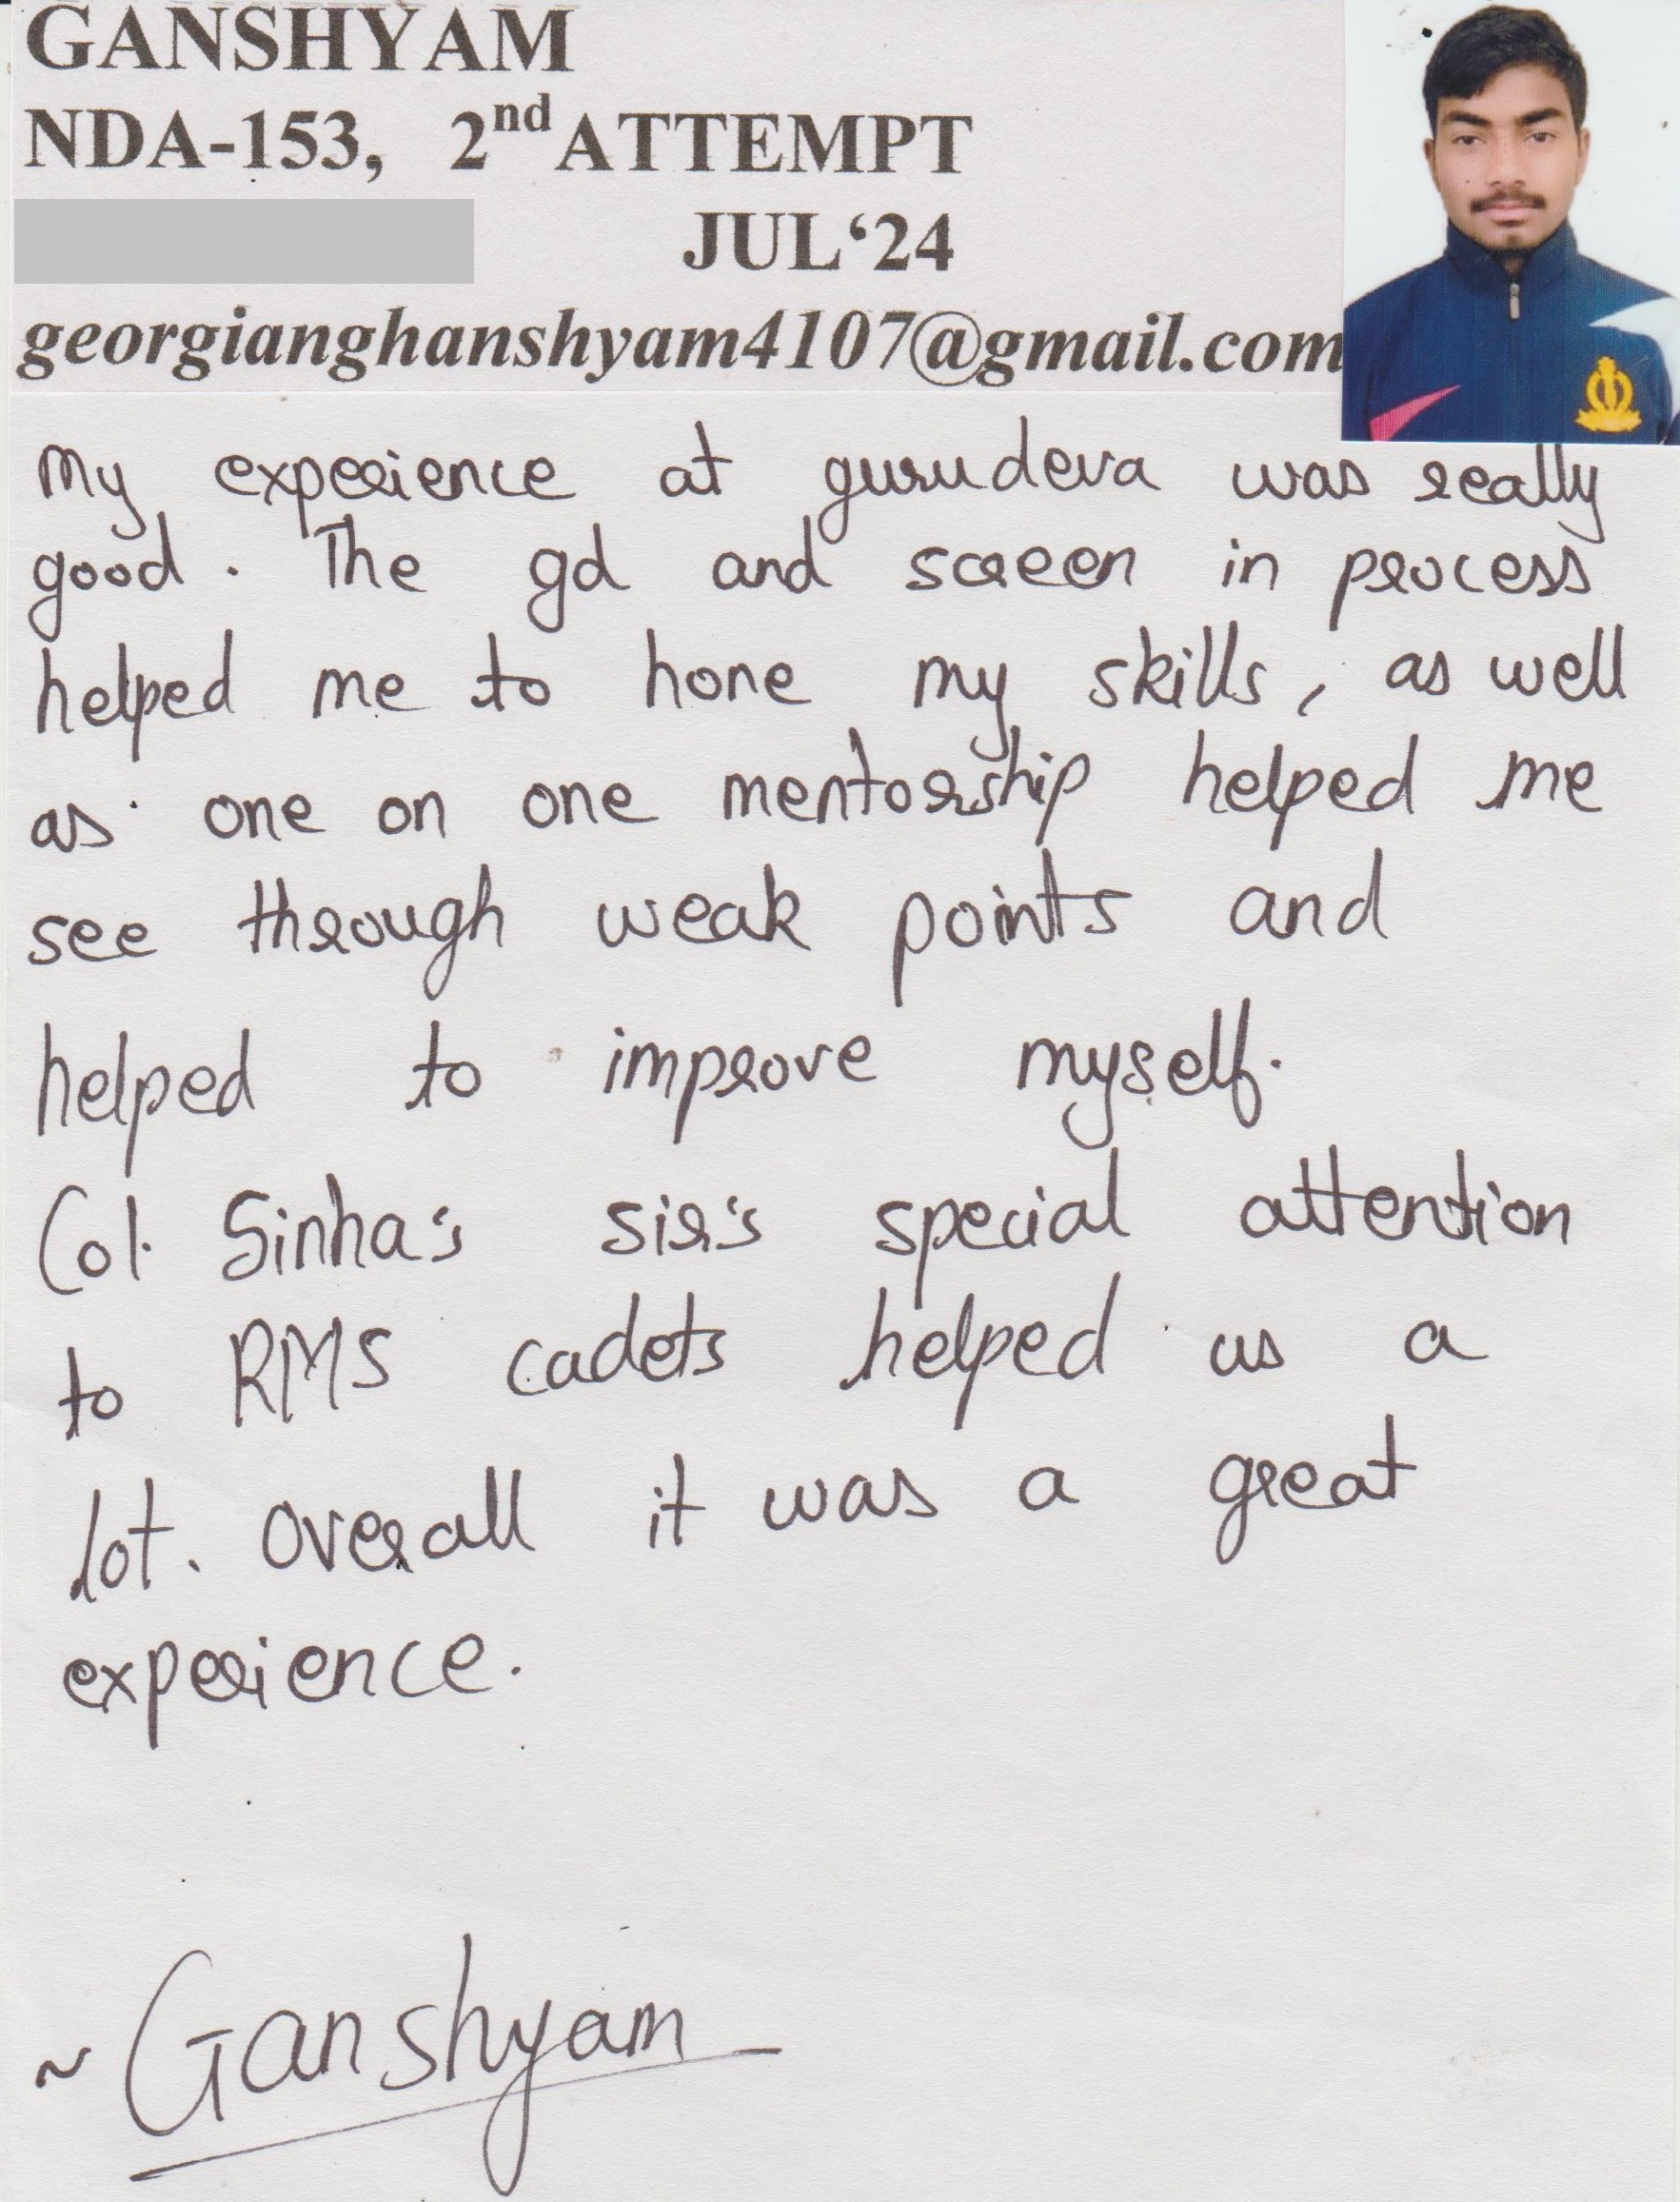 GANSHYAM
NDA-153, 2nd ATTEMPT
JUL‘24
georgianghanshyam4107@gmail.com
My experience at gurudeva was really
good. The gd and screen in process
helped me to hone my skills, as well
as one on one mentorship helped me
see through weak points and
helped to improve myself.
Col. Sinha's sir's special attention
to RMS cadets helped us a
lot. Overall it was a great
experience.
~ Ganshyam